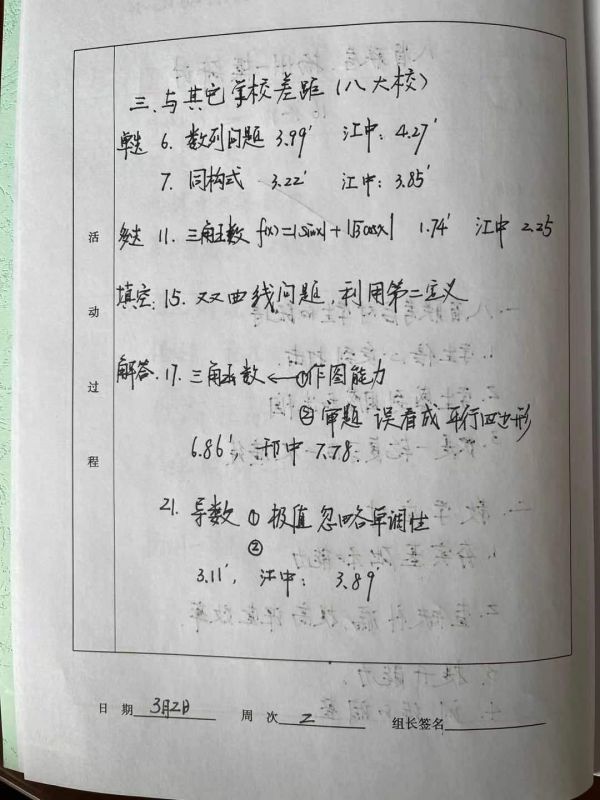 三、与其它学校差距（八大校）
单选 6. 数列问题 3.99′ 江中：4.27′
7. 同构式 3.22′ 江中：3.85′
多选 11. 三角函数 f(x)=|sinx|+|√3cosx| 1.74′ 江中 2.25
填空：15. 双曲线问题，利用第二定义
解答. 17. 三角函数 ← ①作图能力
②审题 误看成 平行四边形
6.86′ 邗中 7.78.
21. 导数 ① 极值 忽略单调性
②
3.11′, 江中： 3.89′
活动过程
日 期 3月2日 周 次 2 组长签名